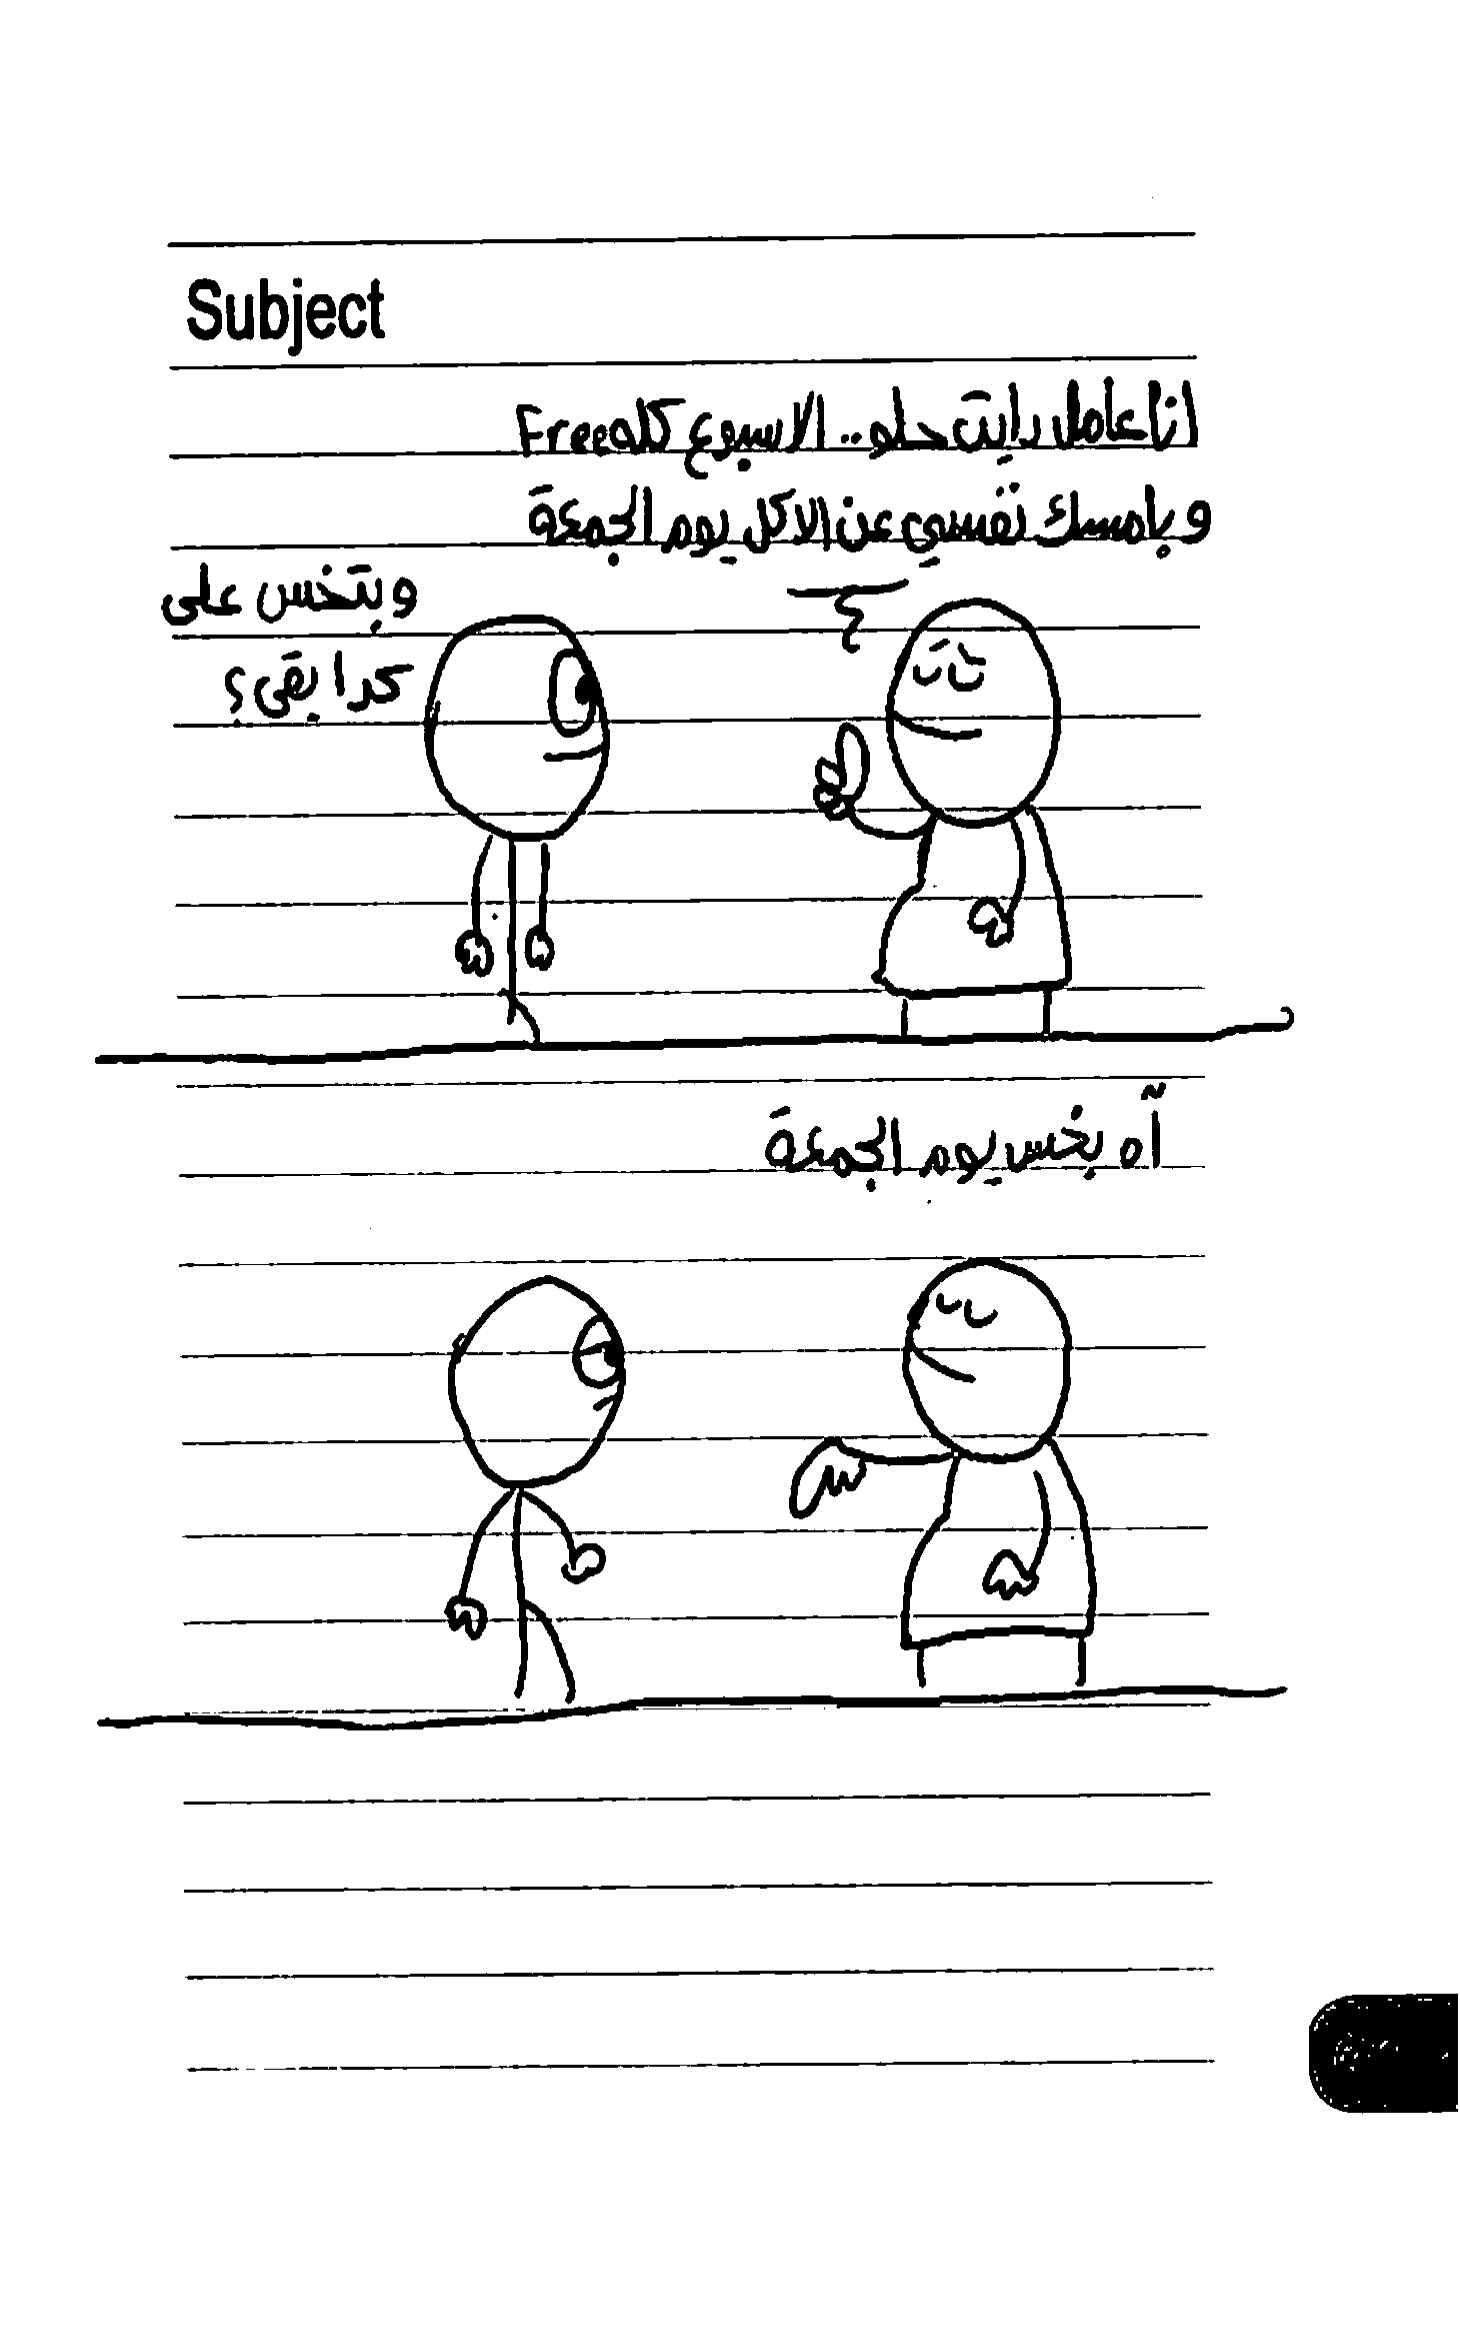 Subject
انا عامل دايت حلو.. الاسبوع كله Free
و بامسك نفسي عن الاكل يوم الجمعة
وبتخس على
كدا بقى؟
آه بخس يوم الجمعة